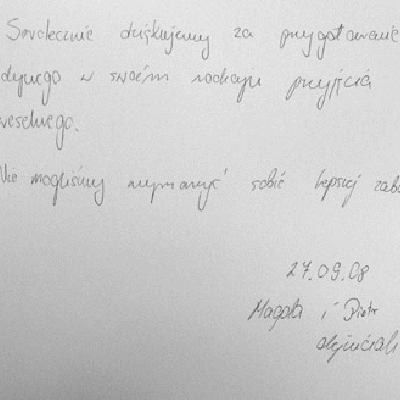 Serdecznie dziękujemy za przygotowanie
dynego w swoim rodzaju przyjęcia
weselnego.
Nie mogliśmy wymarzyć sobie lepszej zaba
27.09.08
Magda i Piotr